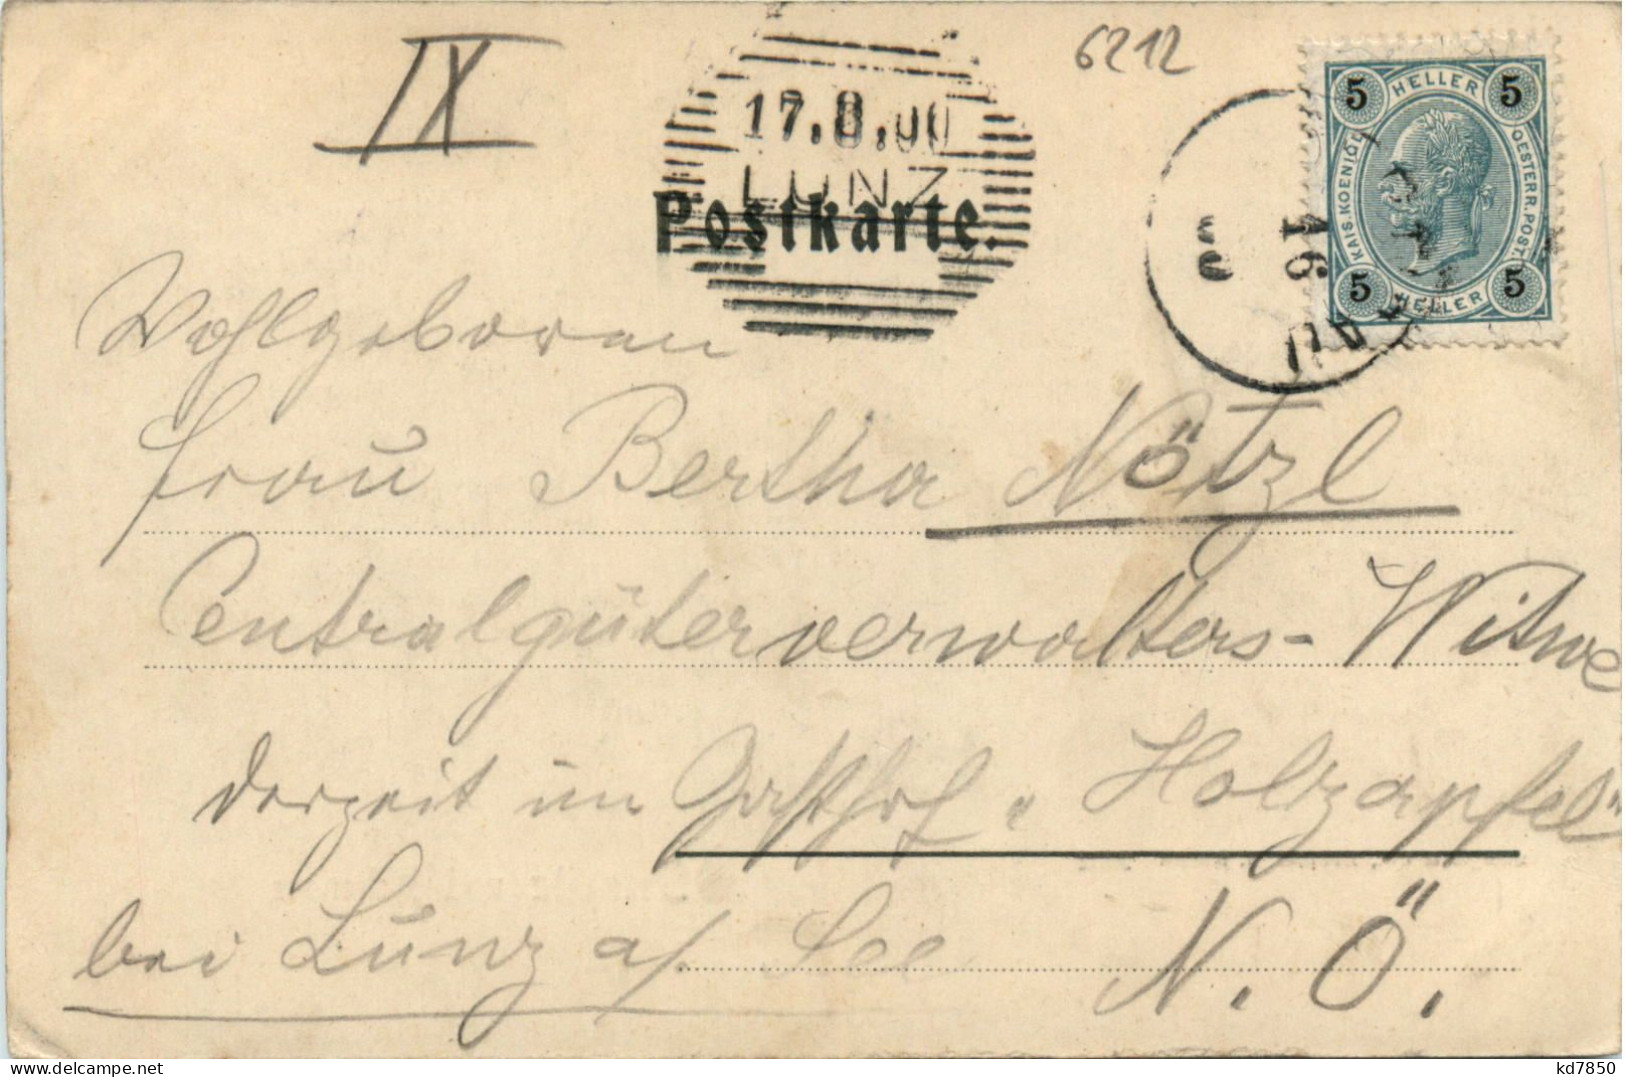 IX
6212
17.8.00
LUNZ
Postkarte.
5 HELLER 5
KAIS. KOENIGL. OESTERR. POST.
5 HELLER 5
16
00
Wohlgeboren
Frau Bertha Nötzl
Centralgüterverwalters-Witwe
derzeit im Gasthof „Holzapfel“
bei Lunz a/ See N.Ö.
kd7850